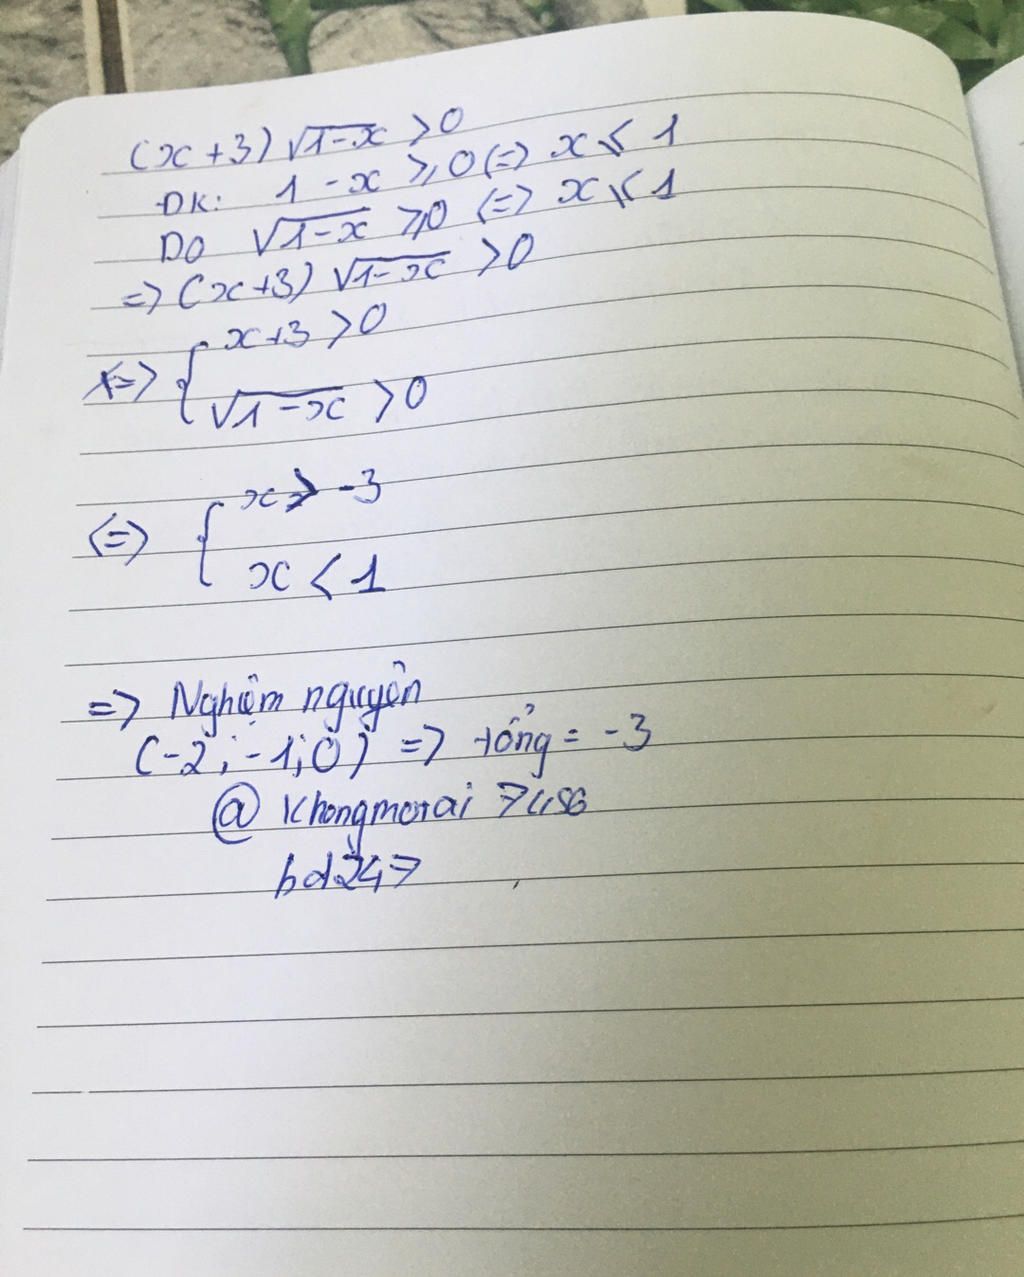 (x+3) √1-x >0
ĐK: 1 - x ⩾ 0 (=) x ⩽ 1
Do √1-x ⩾0 (=) x ⩽ 1
=> (x+3) √1-x >0
<=> { x+3 >0
√1-x >0
<=> { x > -3
x < 1
=> Nghiệm nguyên
(-2; -1; 0) => tổng = -3
@ Khongmorai
bd247